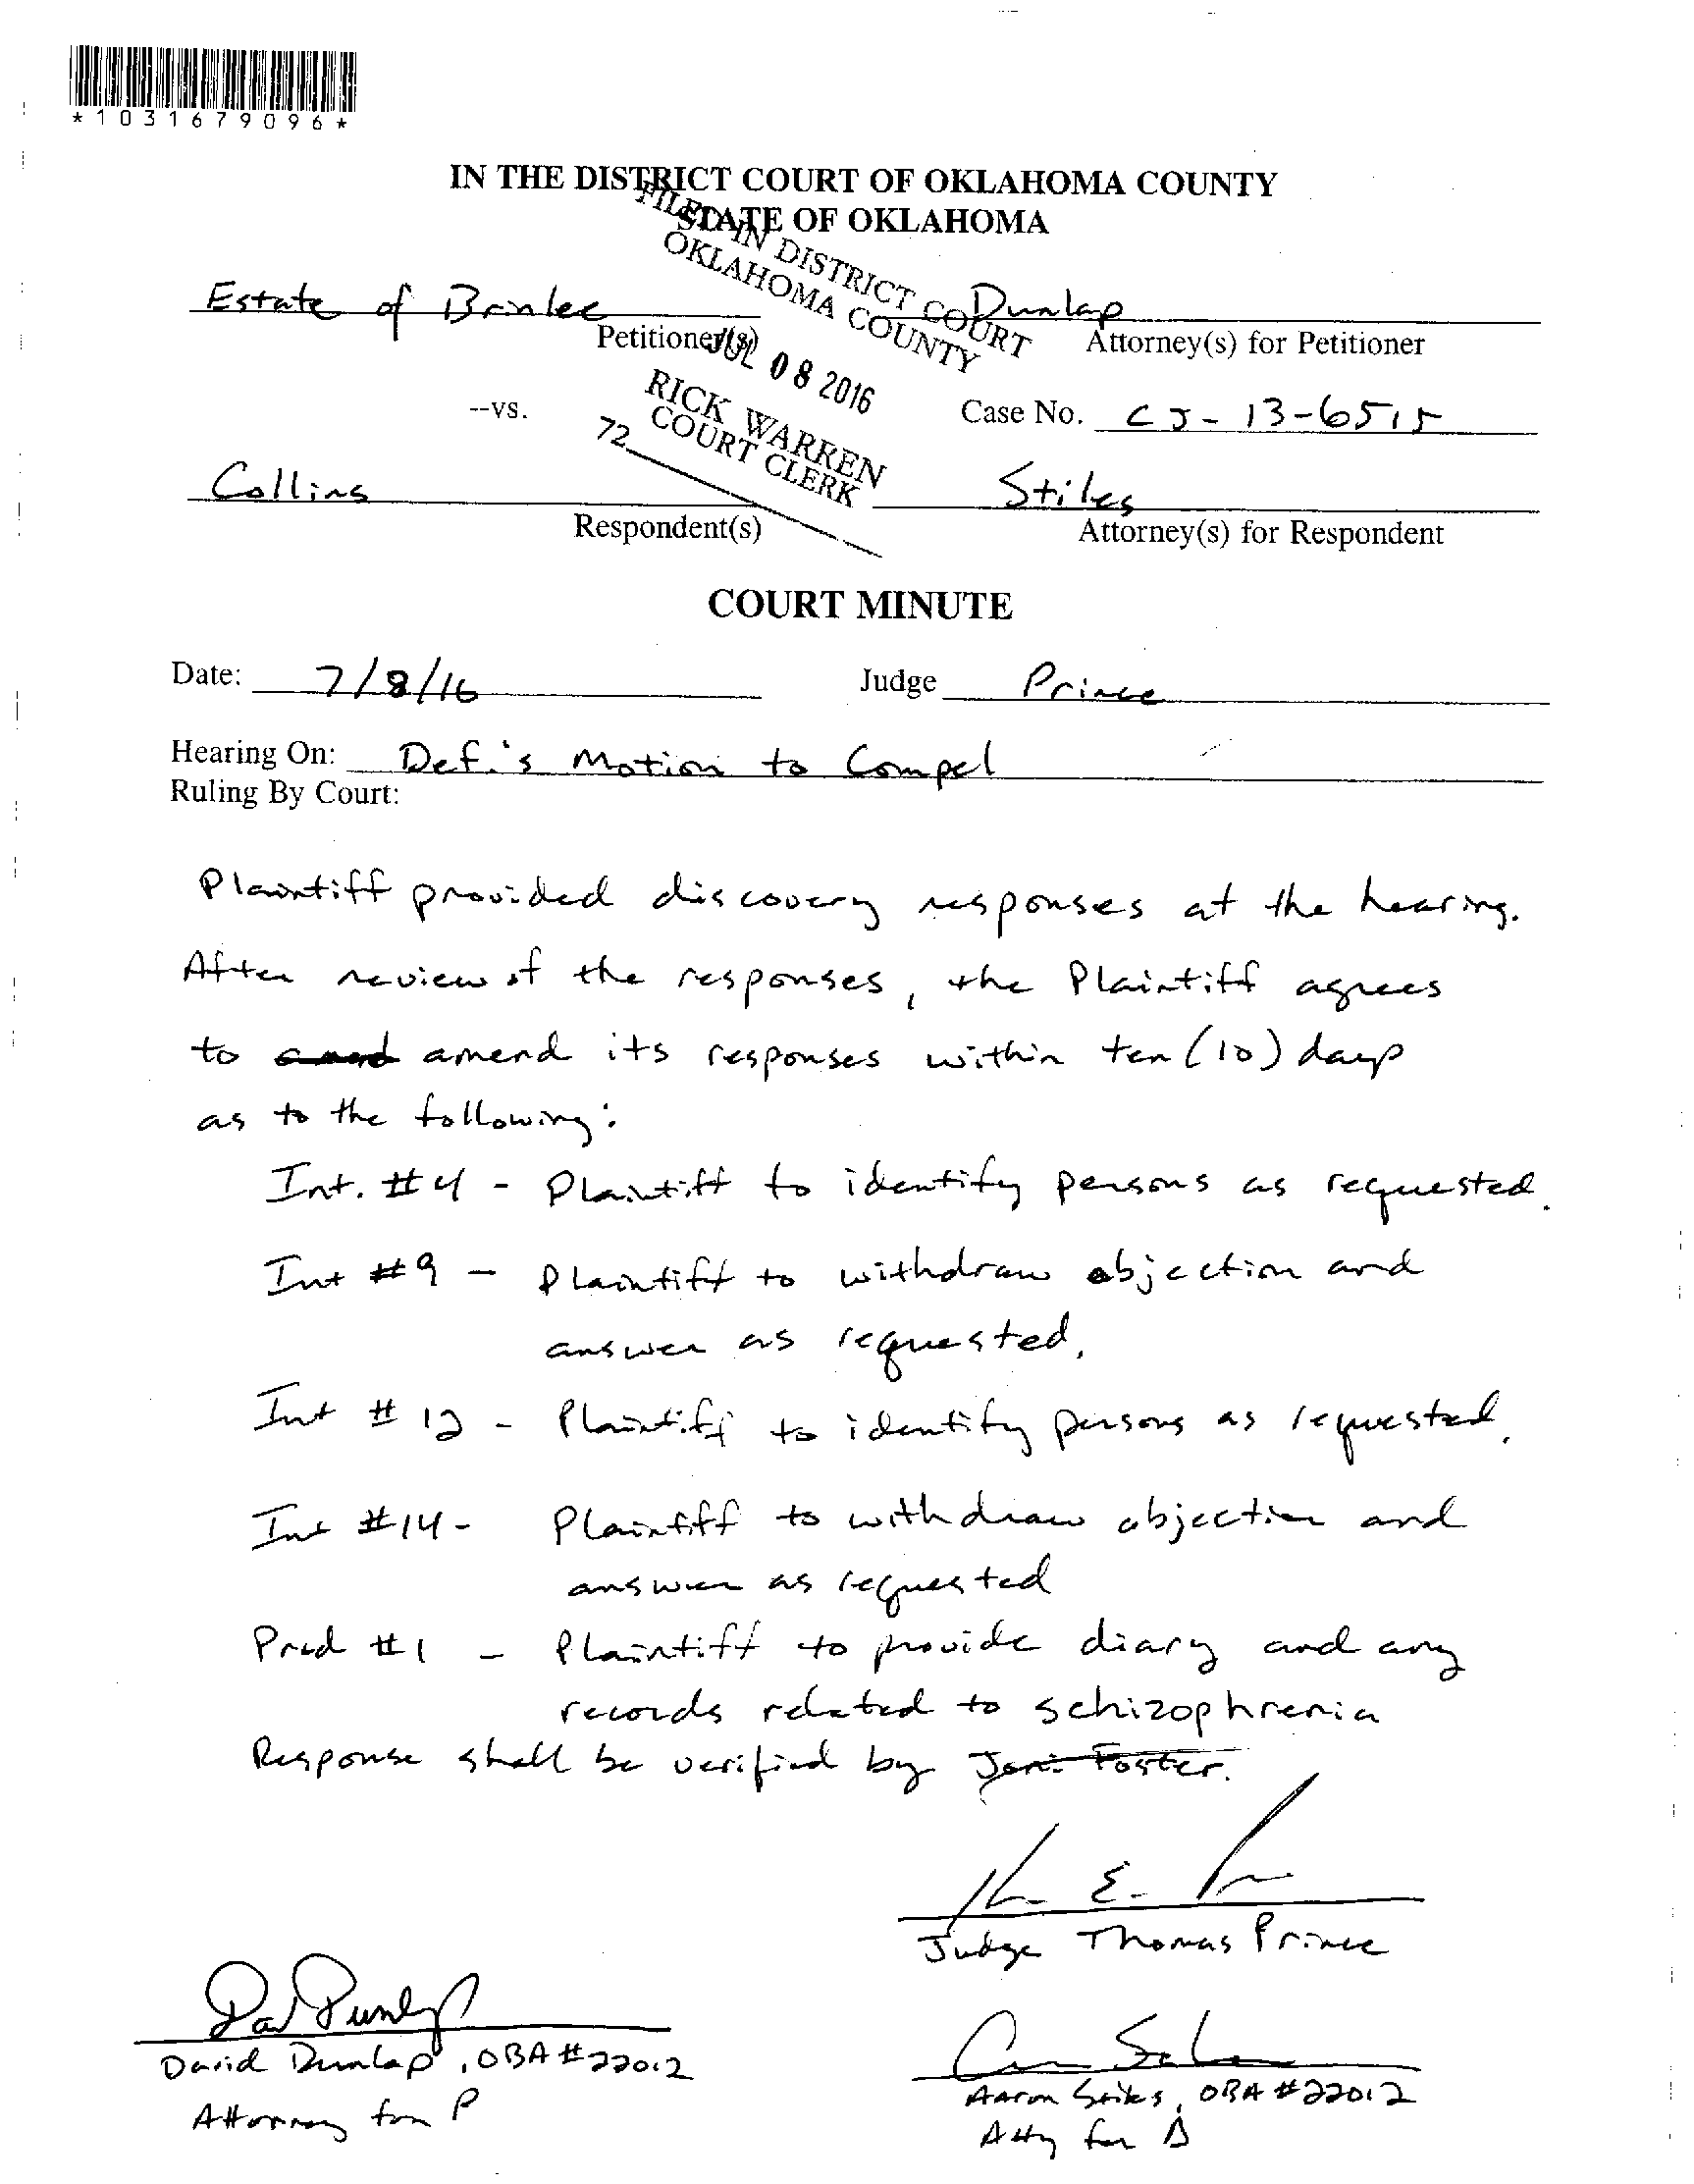 *1031679096*
IN THE DISTRICT COURT OF OKLAHOMA COUNTY
STATE OF OKLAHOMA
FILED IN DISTRICT COURT
OKLAHOMA COUNTY
JUL 08 2016
RICK WARREN
COURT CLERK
72
Estate of Brinlee Dunlap
Petitioner(s) Attorney(s) for Petitioner
--vs. Case No. CJ-13-6515
Collins Stiles
Respondent(s) Attorney(s) for Respondent
COURT MINUTE
Date: 7/8/16 Judge Prince
Hearing On: Def.'s Motion to Compel
Ruling By Court:
Plaintiff provided discovery responses at the hearing.
After review of the responses, the Plaintiff agrees
to amend its responses within ten (10) days
as to the following:
Int. #4 - Plaintiff to identify persons as requested.
Int #9 - Plaintiff to withdraw objection and
answer as requested.
Int #12 - Plaintiff to identify persons as requested.
Int #14 - Plaintiff to withdraw objection and
answer as requested
Prod #1 - Plaintiff to provide diary and any
records related to schizophrenia
Response shall be verified by Joni Foster.
Judge Thomas Prince
David Dunlap, OBA #22012
Attorney for P
Aaron Stiles, OBA #22012
Atty for Δ